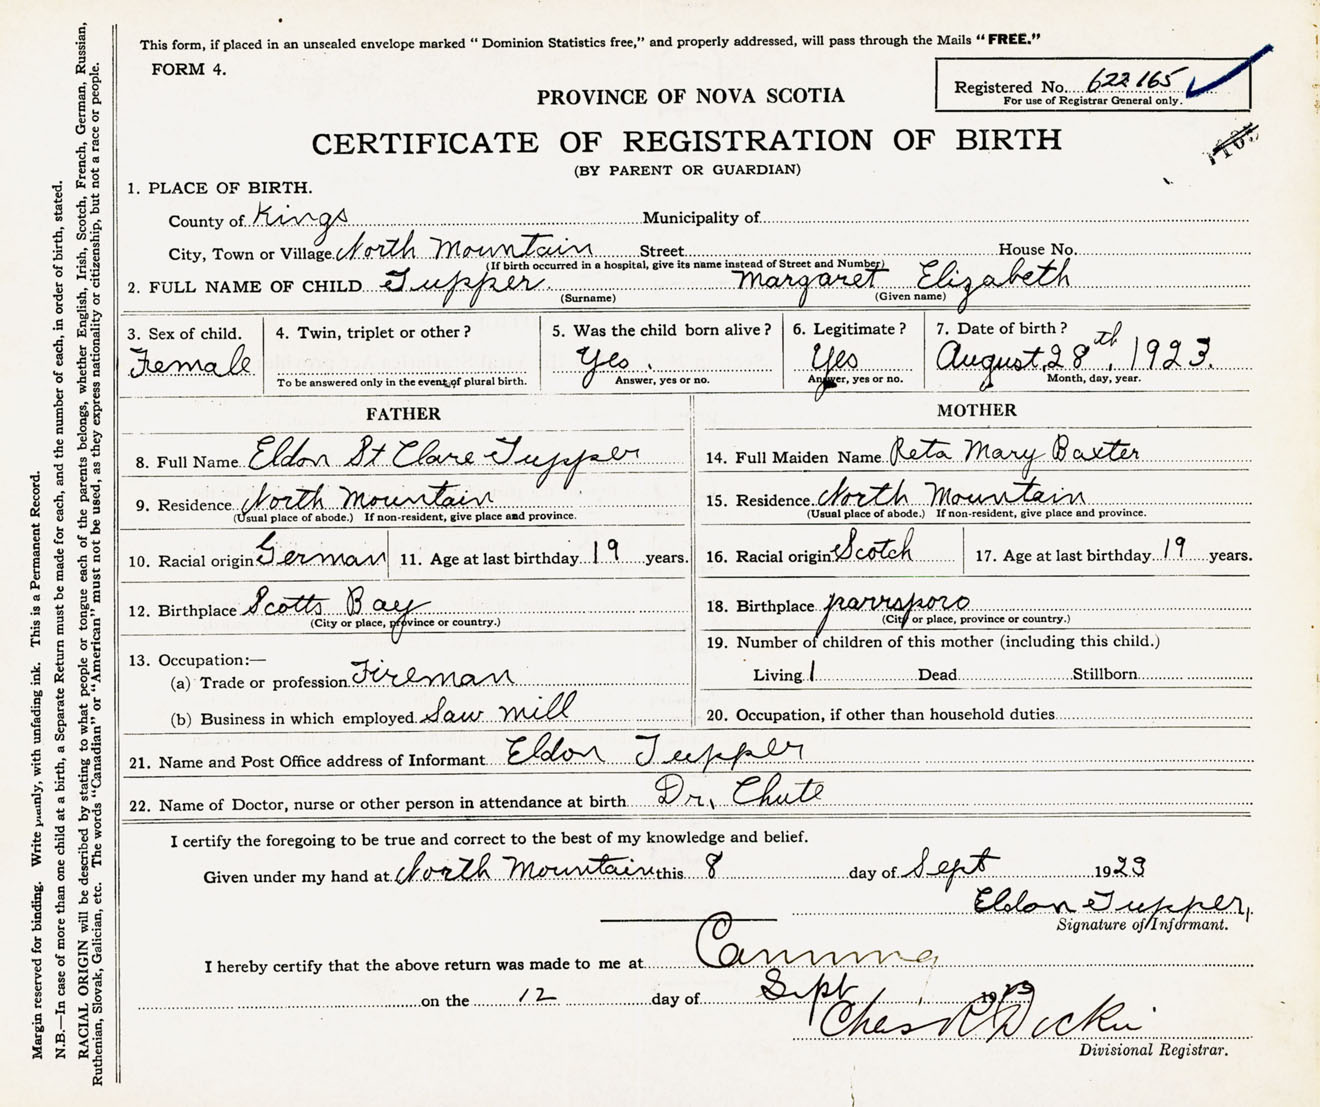 This form, if placed in an unsealed envelope marked “ Dominion Statistics free,” and properly addressed, will pass through the Mails “FREE.”
FORM 4.
Registered No. 622165
For use of Registrar General only.
PROVINCE OF NOVA SCOTIA
CERTIFICATE OF REGISTRATION OF BIRTH
(BY PARENT OR GUARDIAN)
1. PLACE OF BIRTH.
County of Kings Municipality of
City, Town or Village North Mountain Street House No.
(If birth occurred in a hospital, give its name instead of Street and Number)
2. FULL NAME OF CHILD Tupper Margaret Elizabeth
(Surname) (Given name)
3. Sex of child. 4. Twin, triplet or other? 5. Was the child born alive? 6. Legitimate? 7. Date of birth?
Female Yes. Yes August 28th, 1923.
To be answered only in the event of plural birth. Answer, yes or no. Answer, yes or no. Month, day, year.
FATHER
8. Full Name Eldon St Clare Tupper
9. Residence North Mountain
(Usual place of abode.) If non-resident, give place and province.
10. Racial origin German 11. Age at last birthday 19 years.
12. Birthplace Scotts Bay
(City or place, province or country.)
13. Occupation:—
(a) Trade or profession Fireman
(b) Business in which employed Saw mill
MOTHER
14. Full Maiden Name Reta Mary Baxter
15. Residence North Mountain
(Usual place of abode.) If non-resident, give place and province.
16. Racial origin Scotch 17. Age at last birthday 19 years.
18. Birthplace parrsporo
(City or place, province or country.)
19. Number of children of this mother (including this child.)
Living 1 Dead Stillborn
20. Occupation, if other than household duties
21. Name and Post Office address of Informant Eldon Tupper
22. Name of Doctor, nurse or other person in attendance at birth Dr. Chute
I certify the foregoing to be true and correct to the best of my knowledge and belief.
Given under my hand at North Mountain this 8 day of Sept 1923
Eldon Tupper,
Signature of Informant.
I hereby certify that the above return was made to me at Canning
on the 12 day of Sept 1923
Chas R
Divisional Registrar.
Margin reserved for binding. Write plainly, with unfading ink. This is a Permanent Record.
N.B.—In case of more than one child at a birth, a Separate Return must be made for each, and the number of each, in order of birth, stated.
RACIAL ORIGIN will be described by stating to what people or tongue each of the parents belongs, whether English, Irish, Scotch, French, German, Russian,
Ruthenian, Slovak, Galician, etc. The words “Canadian” or “American” must not be used, as they express nationality or citizenship, but not a race or people.